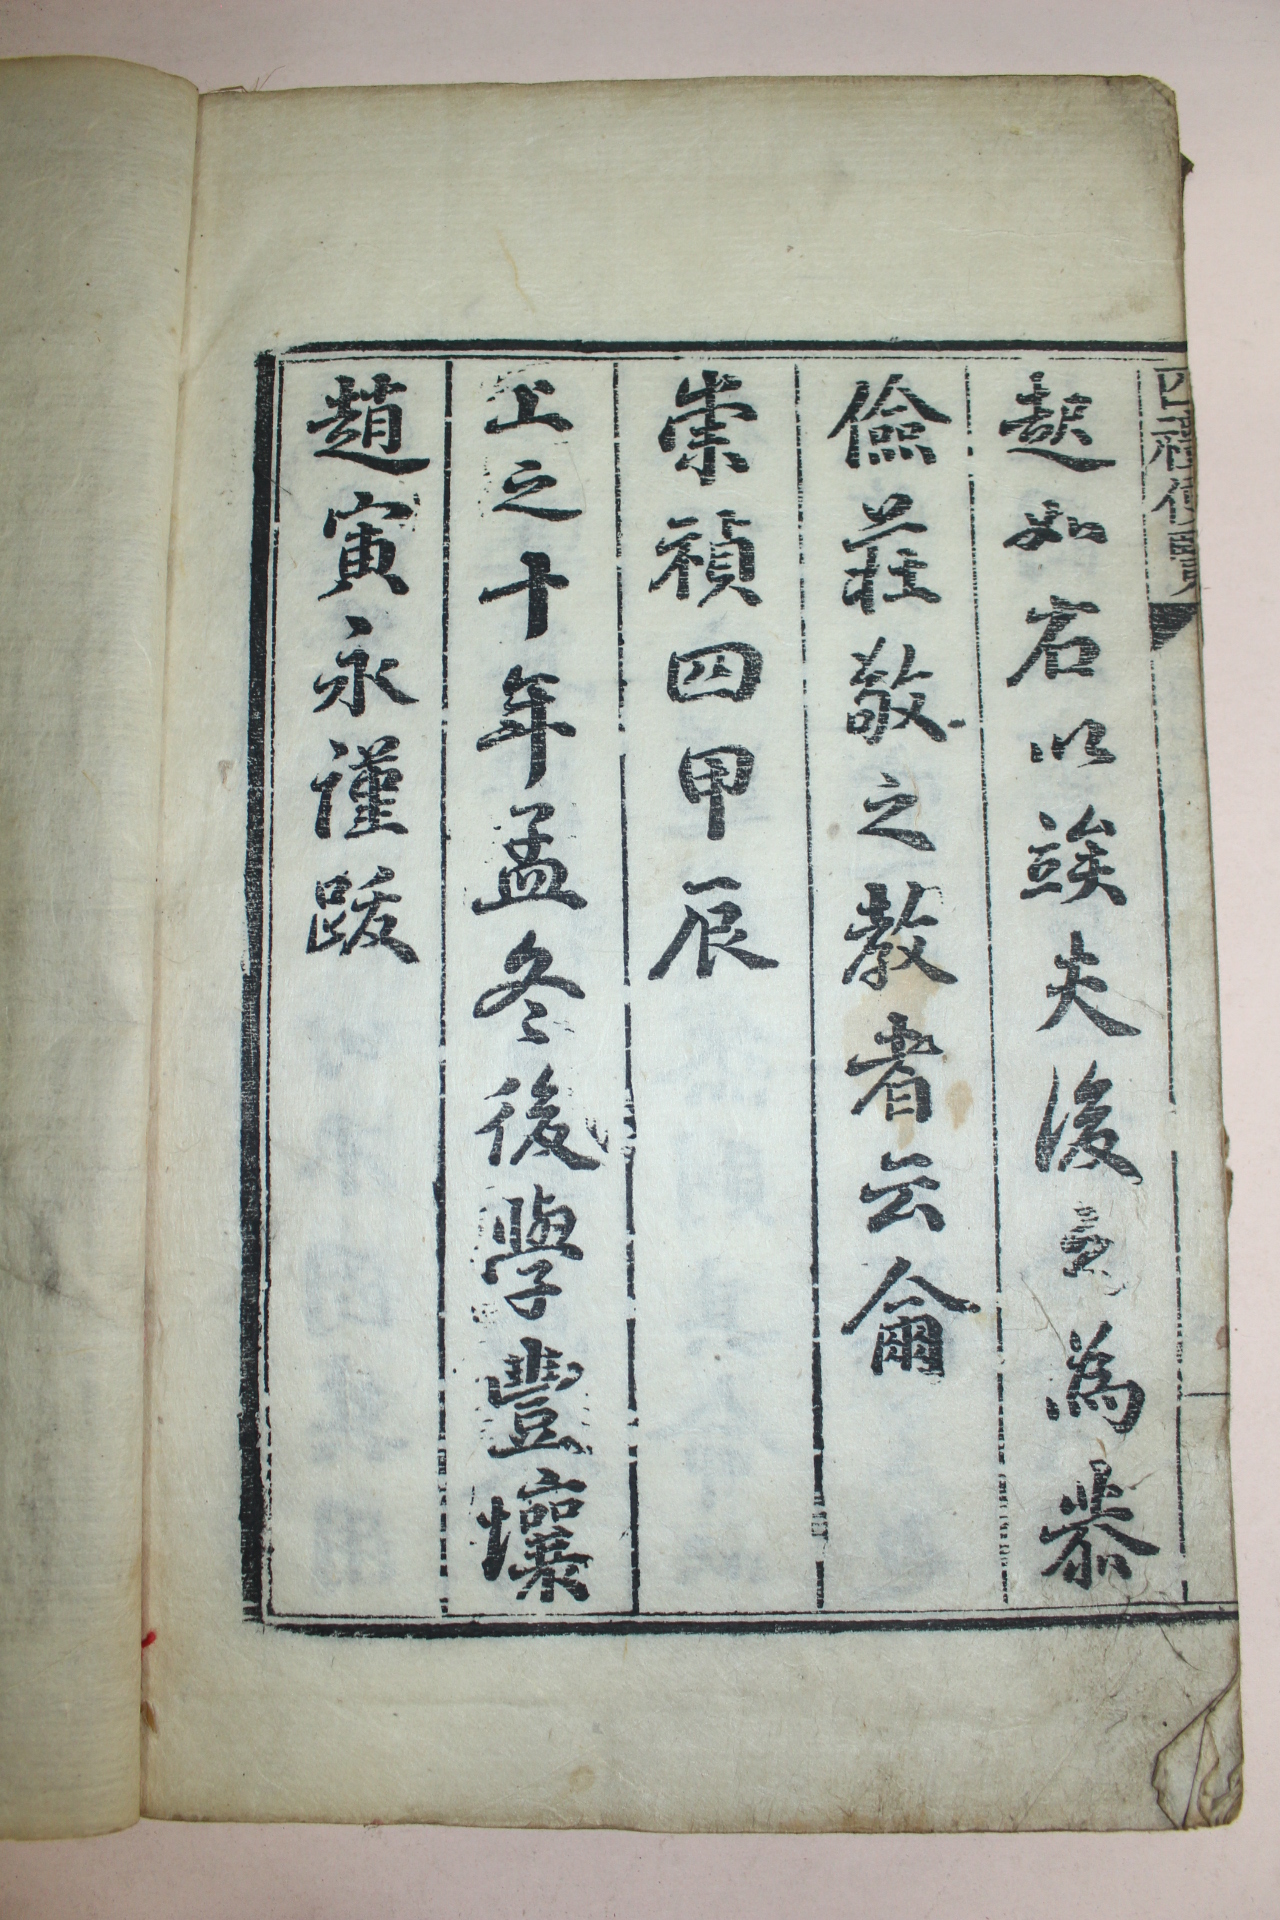 四禮便覽
趣如右以竢夫後爲恭
儉莊敬之敎者云爾
崇禎四甲辰
上之十年孟冬後學豐壤
趙寅永謹跋